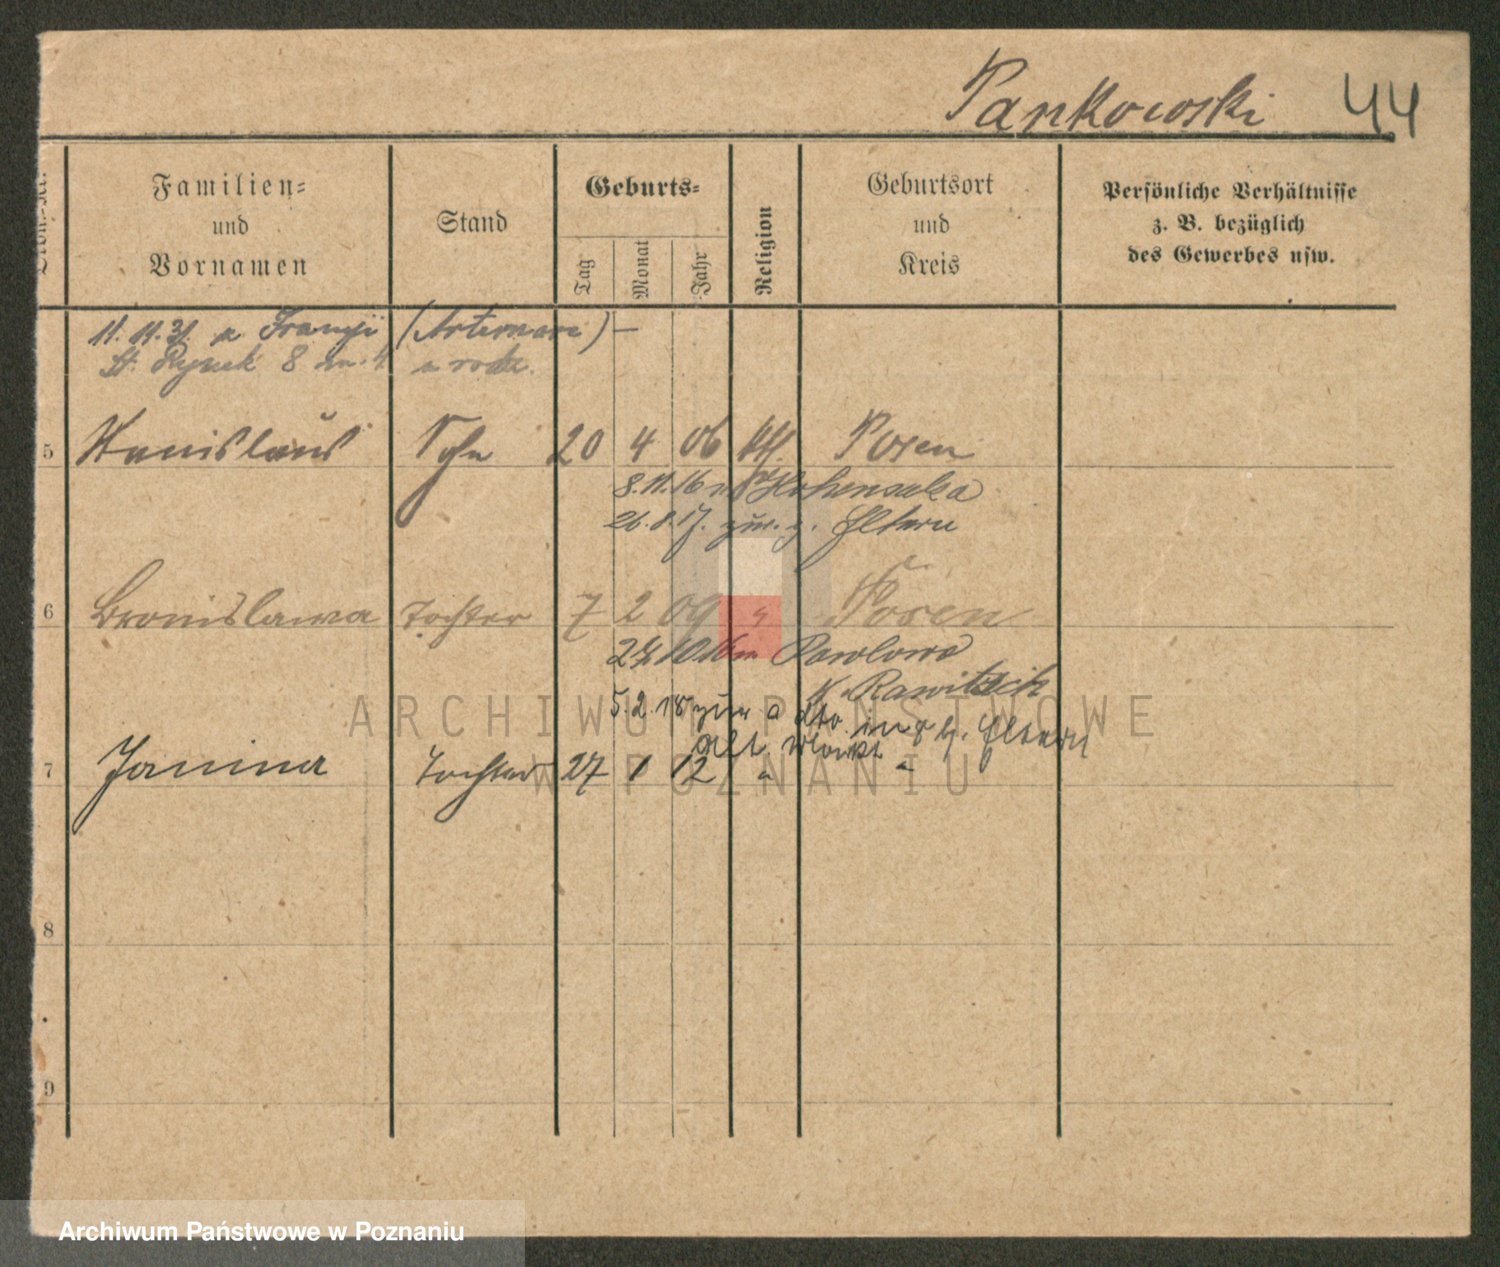 Pankowski 44
Familien=
und
Vornamen
Stand
Geburts=
Tag
Monat
Jahr
Religion
Geburtsort
und
Kreis
Persönliche Verhältnisse
z. B. bezüglich
des Gewerbes usw.
11.11.31. z Francji (Artemare) —
St. Rynek 8 m. 4 u rodz.
5 Stanislaus Sohn 20 4 06 kth. Posen
8.11.16 n Hohensalza
26.8.17. zur. z. Eltern
6 Bronislawa Tochter 7 2 09 " Posen
24 10 16 n Pawlowo
K. Rawitsch
5.2.18 zur a dto. in z h. Eltern
Alt. Markt
7 Janina Tochter 27 1 12 " "
8
9
ARCHIWUM PAŃSTWOWE
W POZNANIU
Archiwum Państwowe w Poznaniu